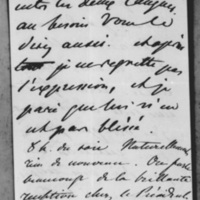 entre les deux langues,
au besoin vous le
direz aussi. et après
tout je ne regrette pas
l'expression, et je
parie que lui n'en
est pas blessé.
8 h. du soir Naturellement
rien de nouveau. On parle
beaucoup de la brillante
réception chez le Président